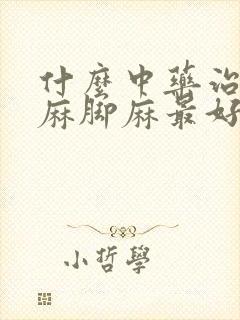 什麼中藥治
麻脚麻最好
小哲學